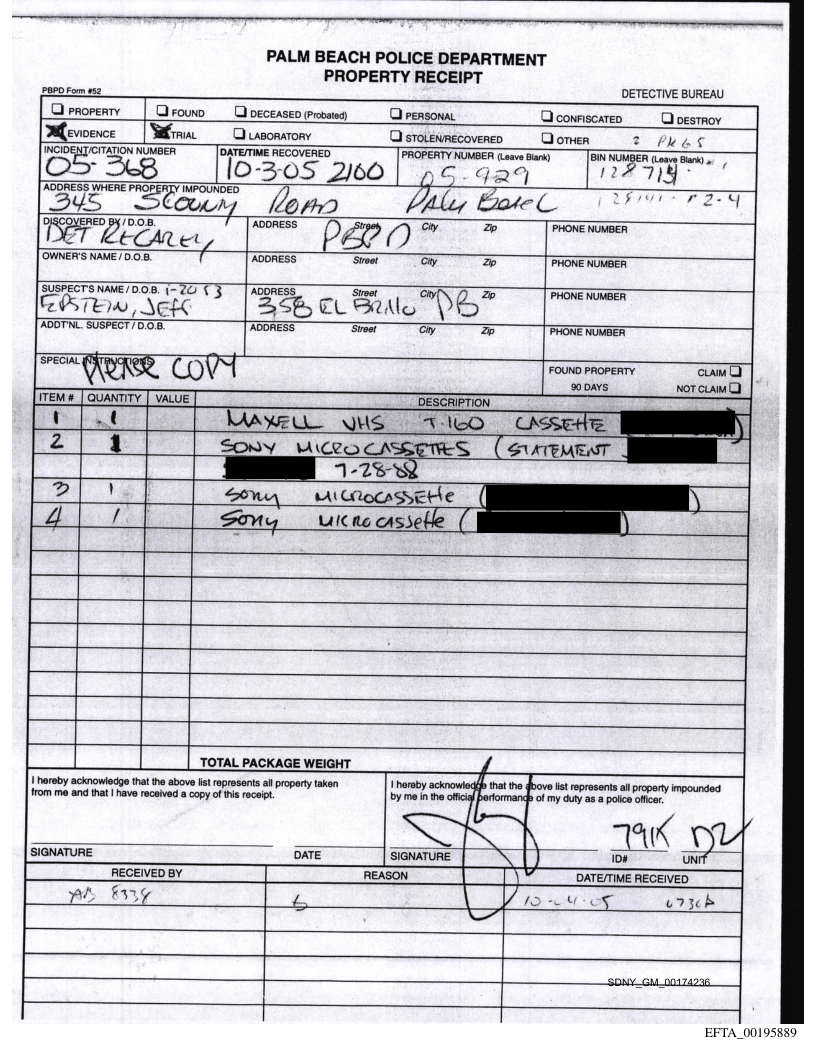 PALM BEACH POLICE DEPARTMENT
PROPERTY RECEIPT
PBPD Form #52
DETECTIVE BUREAU
PROPERTY FOUND DECEASED (Probated) PERSONAL CONFISCATED DESTROY
EVIDENCE TRIAL LABORATORY STOLEN/RECOVERED OTHER 2 PKGS
INCIDENT/CITATION NUMBER DATE/TIME RECOVERED PROPERTY NUMBER (Leave Blank) BIN NUMBER (Leave Blank)
05-368 10-3-05 2100 05-929
ADDRESS WHERE PROPERTY IMPOUNDED
345 S COUNTY ROAD PALM BEACH
DISCOVERED BY / D.O.B. ADDRESS Street City Zip PHONE NUMBER
DET RECAREY PBPD
OWNER'S NAME / D.O.B. ADDRESS Street City Zip PHONE NUMBER
SUSPECT'S NAME / D.O.B. 1-20 53 ADDRESS Street City Zip PHONE NUMBER
EPSTEIN, JEFF 358 EL BRILLO PB
ADDT'NL. SUSPECT / D.O.B. ADDRESS Street City Zip PHONE NUMBER
SPECIAL INSTRUCTIONS Please COPY
FOUND PROPERTY CLAIM
90 DAYS NOT CLAIM
ITEM # QUANTITY VALUE DESCRIPTION
1 1 MAXELL VHS T-160 CASSETTE
2 1 SONY MICROCASSETTES (STATEMENT
7-28-88
3 1 Sony MICROCASSETTE ( )
4 1 Sony MICROCASSETTE ( )
TOTAL PACKAGE WEIGHT
I hereby acknowledge that the above list represents all property taken
from me and that I have received a copy of this receipt.
I hereby acknowledge that the above list represents all property impounded
by me in the official performance of my duty as a police officer.
791K D2
SIGNATURE DATE SIGNATURE ID# UNIT
RECEIVED BY REASON DATE/TIME RECEIVED
8334 10-04-05
SDNY_GM_00174236
EFTA_00195889